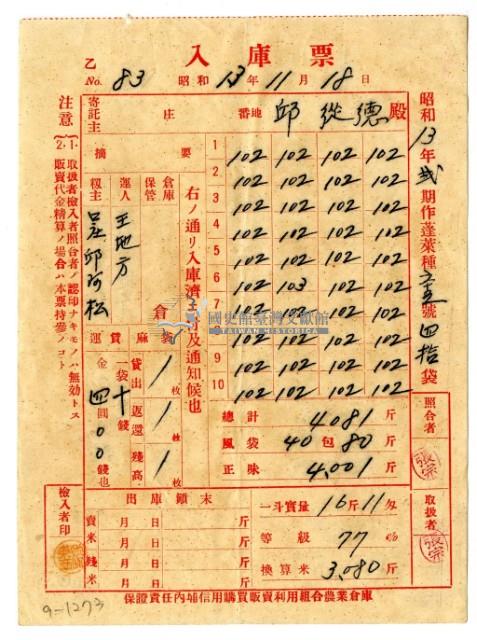 入庫票
乙 No. 83 昭和 13 年 11 月 18 日
昭和 13 年 貳 期作蓬萊種 號 四拾 袋
寄託主 庄 番地 邱 從德 殿
摘要
1 102 102 102 102
2 102 102 102 102
3 102 102 102 102
4 102 102 102 102
5 102 102 102 102
6 102 103 102 102
7 102 102 102 102
8 102 102 102 102
9 102 102 102 102
10 102 102 102 102
總計 4081 斤
風袋 40 包 80 斤
正味 4,001 斤
右ノ通リ入庫濟ニ付及通知候也
倉庫保管 倉
運人 王地方
籾主 邱阿松
運賃 一袋 十 錢
金 四 圓 00 錢也
麻袋
貸出 1 枚
返還 1 枚
殘高 1 枚
國史館臺灣文獻館
TAIWAN HISTORICA
出庫顚末
賣米 月 日 斤
月 日 斤
殘米 月 日 斤
月 日 斤
一斗實量 16 斤 11 匁
等級 77 %
換算米 3,080 斤
照合者 張宗
取扱者 張宗
檢入者印
注意
1、取扱者檢入者照合者ノ認印ナキモノハ無効トス
2、販賣代金精算ノ場合ハ本票持參ノコト
保證責任內埔信用購買販賣利用組合農業倉庫
9-1273